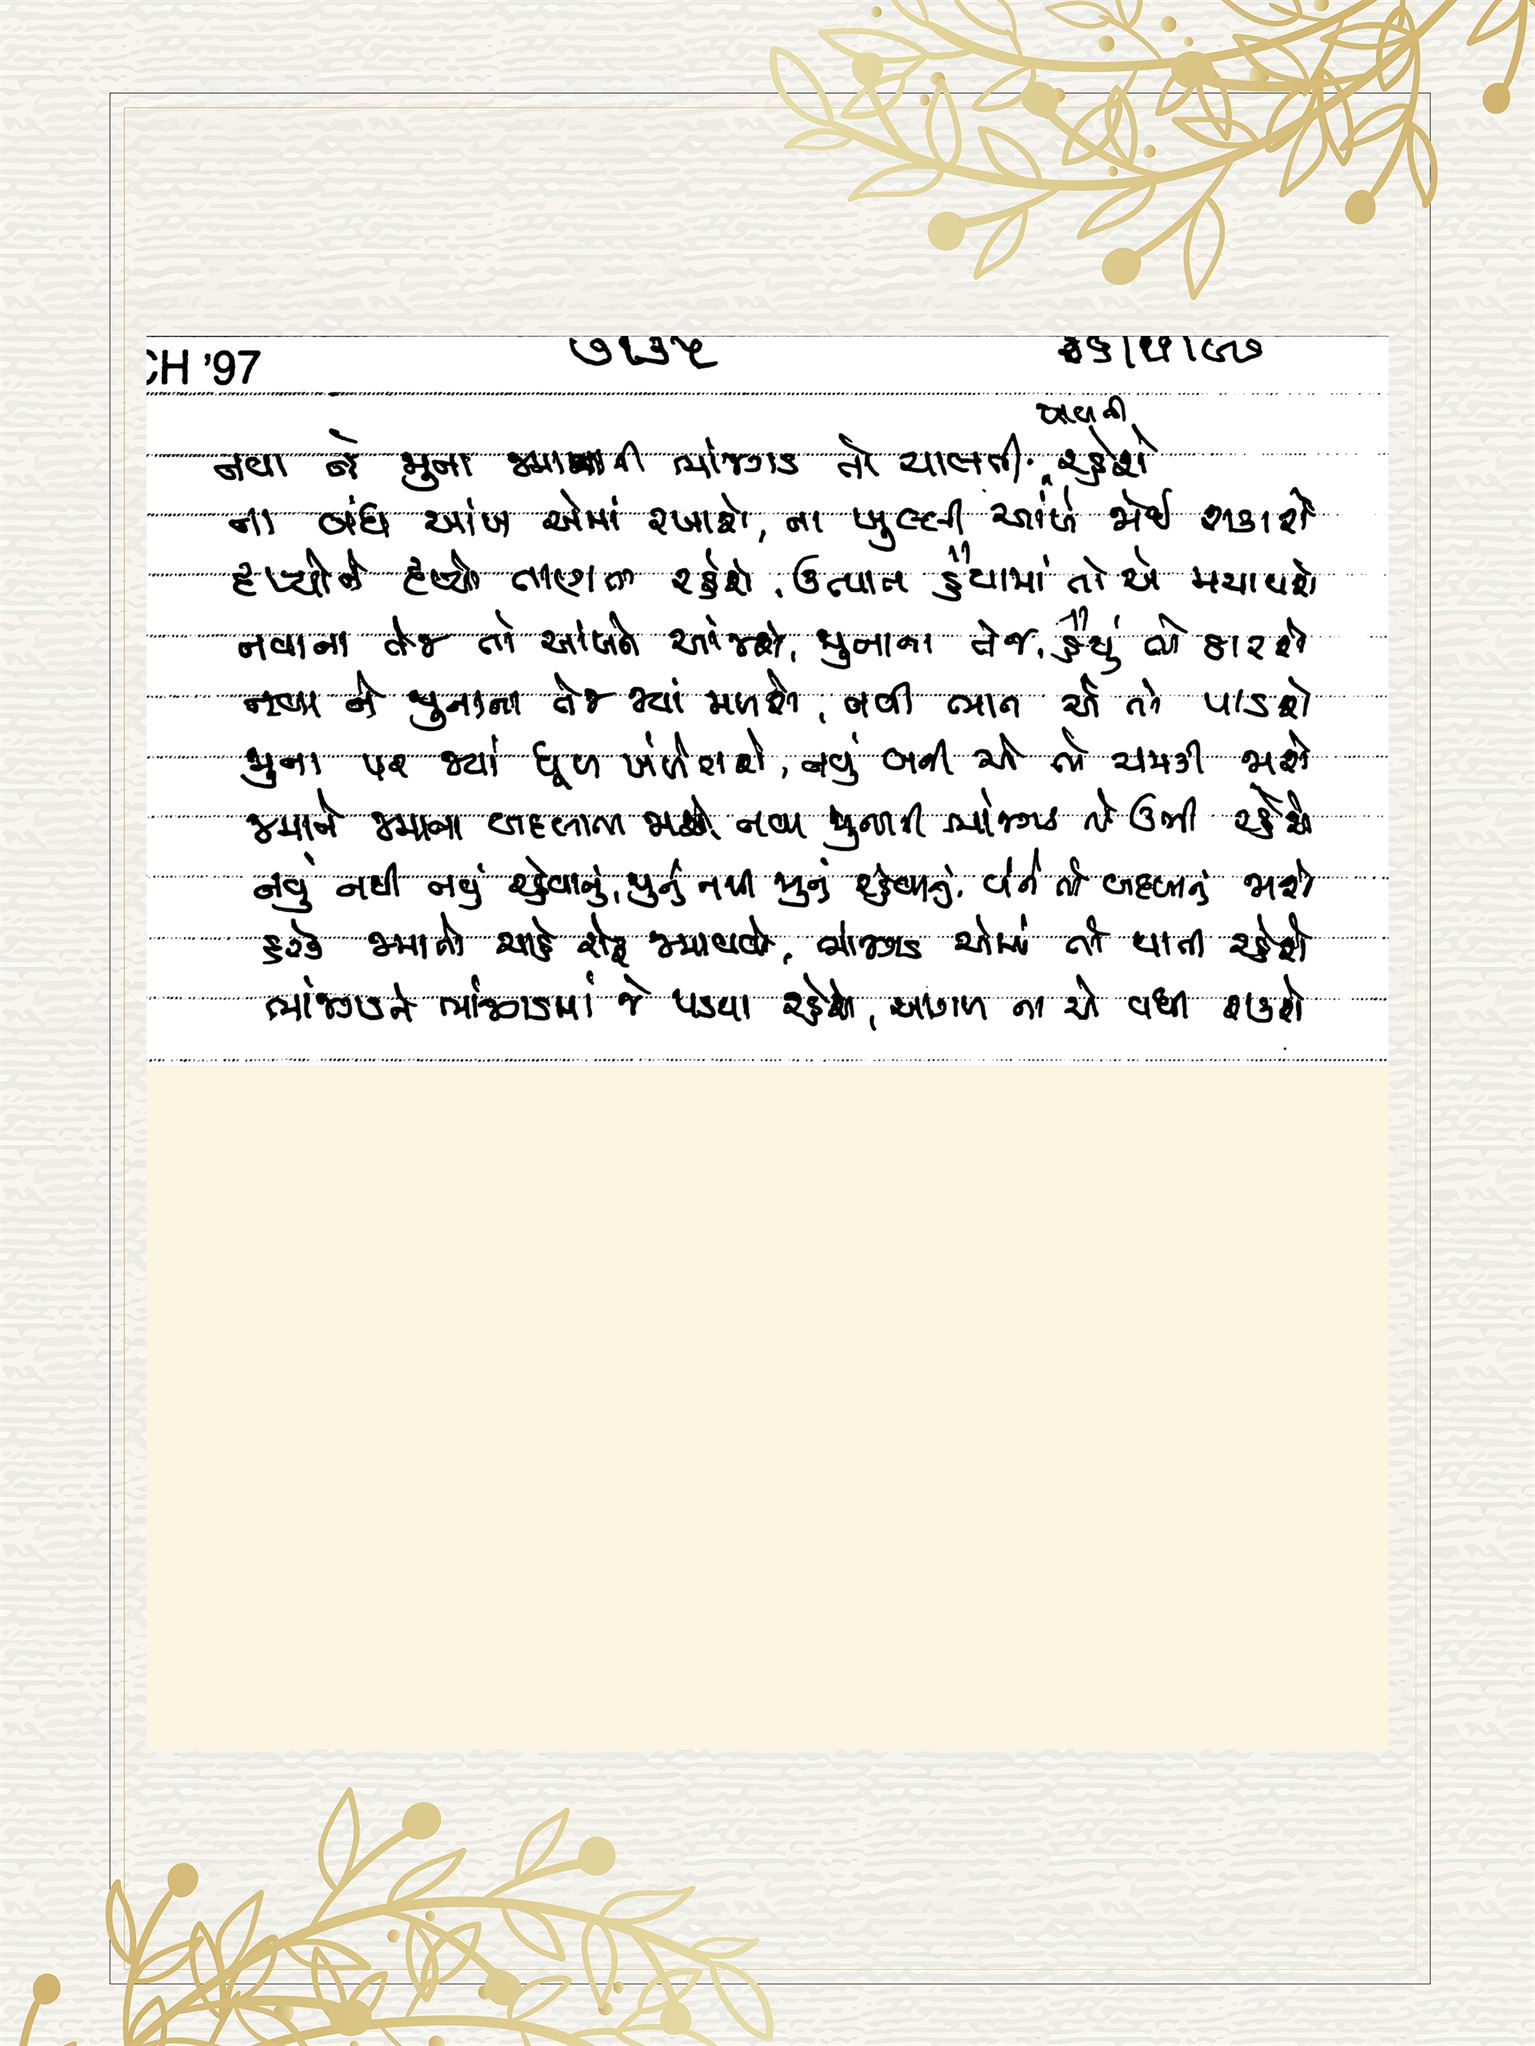 CH '97
૭૧૩૫
ચાલતી
નવા ને જુના જમાનાની ભાંજગડ તો ચાલતી રહેશે
ના બંધ આંખ એમાં રખાશે, ના ખુલ્લી આંખે જોઈ શકાશે
દૃષ્યોને દૃષ્યો તાણતા રહેશે, ઉત્પાત હૈયામાં તો એ મચાવશે
નવાના તેજ તો આંખને આંજશે, જુનાના તેજ, હૈયું તો ઠારશે
નવા ને જુનાના તેજ જ્યાં મળશે, નવી ભાત એ તો પાડશે
જુના પર જ્યાં ધૂળ ખંખેરાશે, નવું બની એ તો ચમકી જાશે
જમાને જમાના બદલાતા જાશે, નવા જુનાની ભાંજગડ તો ઉભી રહેશે
નવું નથી નવું રહેવાનું, જુનું નથી જુનું રહેવાનું, બંને તો બદલાતું જાશે
હરેક જમાનો ચાહે રોફ જમાવવો, ભાંજગડ એમાં તો થાતી રહેશે
ભાંજગડને ભાંજગડમાં જે પડયા રહેશે, આગળ ના એ વધી શકશે